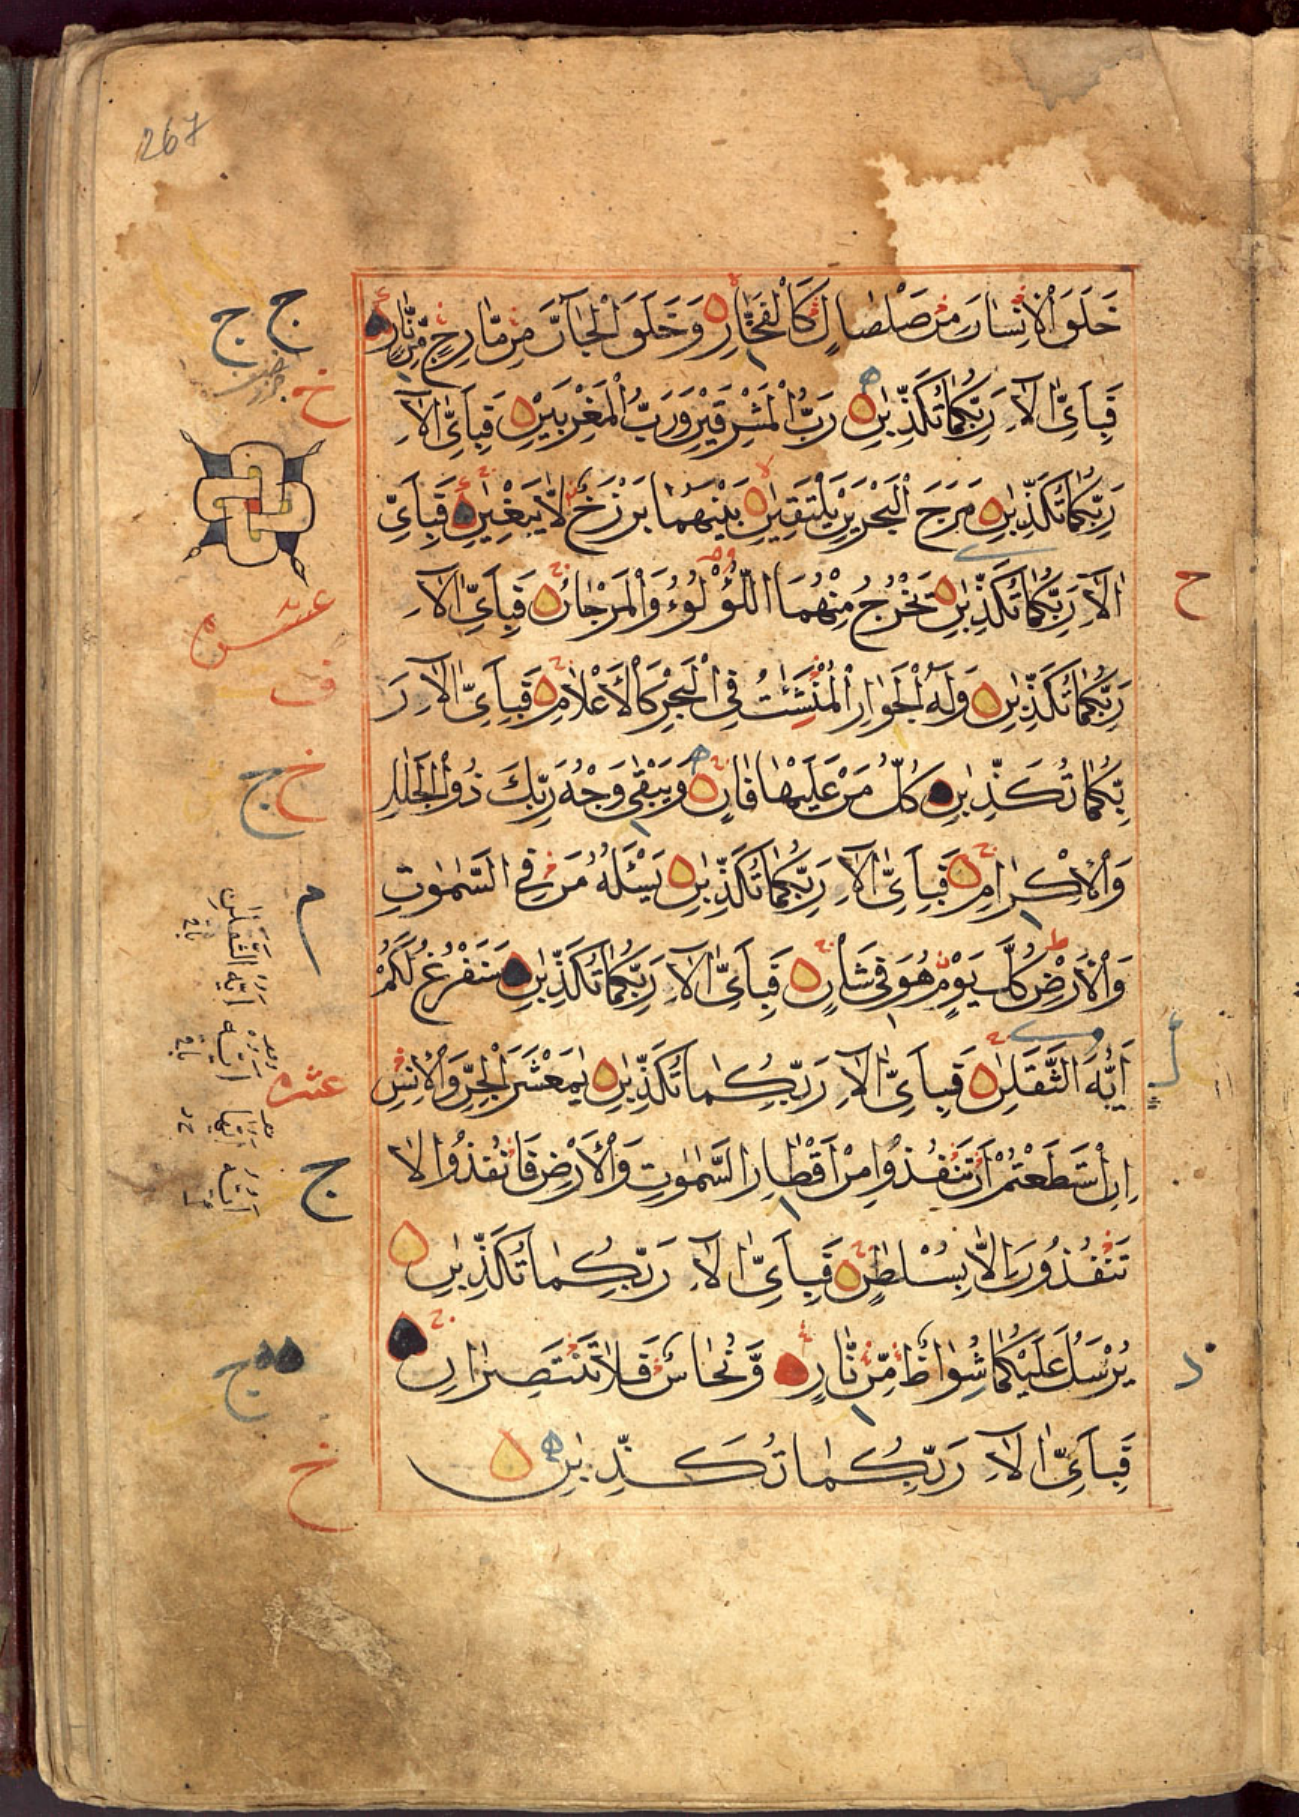 267
خَلَقَ الْاِنْسَانَ مِنْ صَلْصَالٍ كَالْفَخَّارِ وَخَلَقَ الْجَآنَّ مِنْ مَّارِجٍ مِّنْ نَّارٍ
فَبِاَىِّ اٰلَآءِ رَبِّكُمَا تُكَذِّبٰنِ رَبُّ الْمَشْرِقَيْنِ وَرَبُّ الْمَغْرِبَيْنِ فَبِاَىِّ اٰلَآءِ
رَبِّكُمَا تُكَذِّبٰنِ مَرَجَ الْبَحْرَيْنِ يَلْتَقِيٰنِ بَيْنَهُمَا بَرْزَخٌ لَّا يَبْغِيٰنِ فَبِاَىِّ
اٰلَآءِ رَبِّكُمَا تُكَذِّبٰنِ يَخْرُجُ مِنْهُمَا اللُّؤْلُوءُ وَالْمَرْجَانُ فَبِاَىِّ اٰلَآءِ
رَبِّكُمَا تُكَذِّبٰنِ وَلَهُ الْجَوَارِ الْمُنْشَئٰتُ فِى الْبَحْرِ كَالْاَعْلَامِ فَبِاَىِّ اٰلَآءِ رَ
بِّكُمَا تُكَذِّبٰنِ كُلُّ مَنْ عَلَيْهَا فَانٍ وَيَبْقٰى وَجْهُ رَبِّكَ ذُو الْجَلٰلِ
وَالْاِكْرَامِ فَبِاَىِّ اٰلَآءِ رَبِّكُمَا تُكَذِّبٰنِ يَسْئَلُهُ مَنْ فِى السَّمٰوٰتِ
وَالْاَرْضِ كُلَّ يَوْمٍ هُوَ فِى شَاْنٍ فَبِاَىِّ اٰلَآءِ رَبِّكُمَا تُكَذِّبٰنِ سَنَفْرُغُ لَكُمْ
اَيُّهَ الثَّقَلٰنِ فَبِاَىِّ اٰلَآءِ رَبِّكُمَا تُكَذِّبٰنِ يٰمَعْشَرَ الْجِنِّ وَالْاِنْسِ
اِنِ اسْتَطَعْتُمْ اَنْ تَنْفُذُوا مِنْ اَقْطَارِ السَّمٰوٰتِ وَالْاَرْضِ فَانْفُذُوا لَا
تَنْفُذُونَ اِلَّا بِسُلْطٰنٍ فَبِاَىِّ اٰلَآءِ رَبِّكُمَا تُكَذِّبٰنِ
يُرْسَلُ عَلَيْكُمَا شُوَاظٌ مِّنْ نَّارٍ وَّنُحَاسٌ فَلَا تَنْتَصِرَانِ
فَبِاَىِّ اٰلَآءِ رَبِّكُمَا تُكَذِّبٰنِ
ج ج
خ
عشر
ف
خ ج
م
عشره
ج
ج
خ
ح